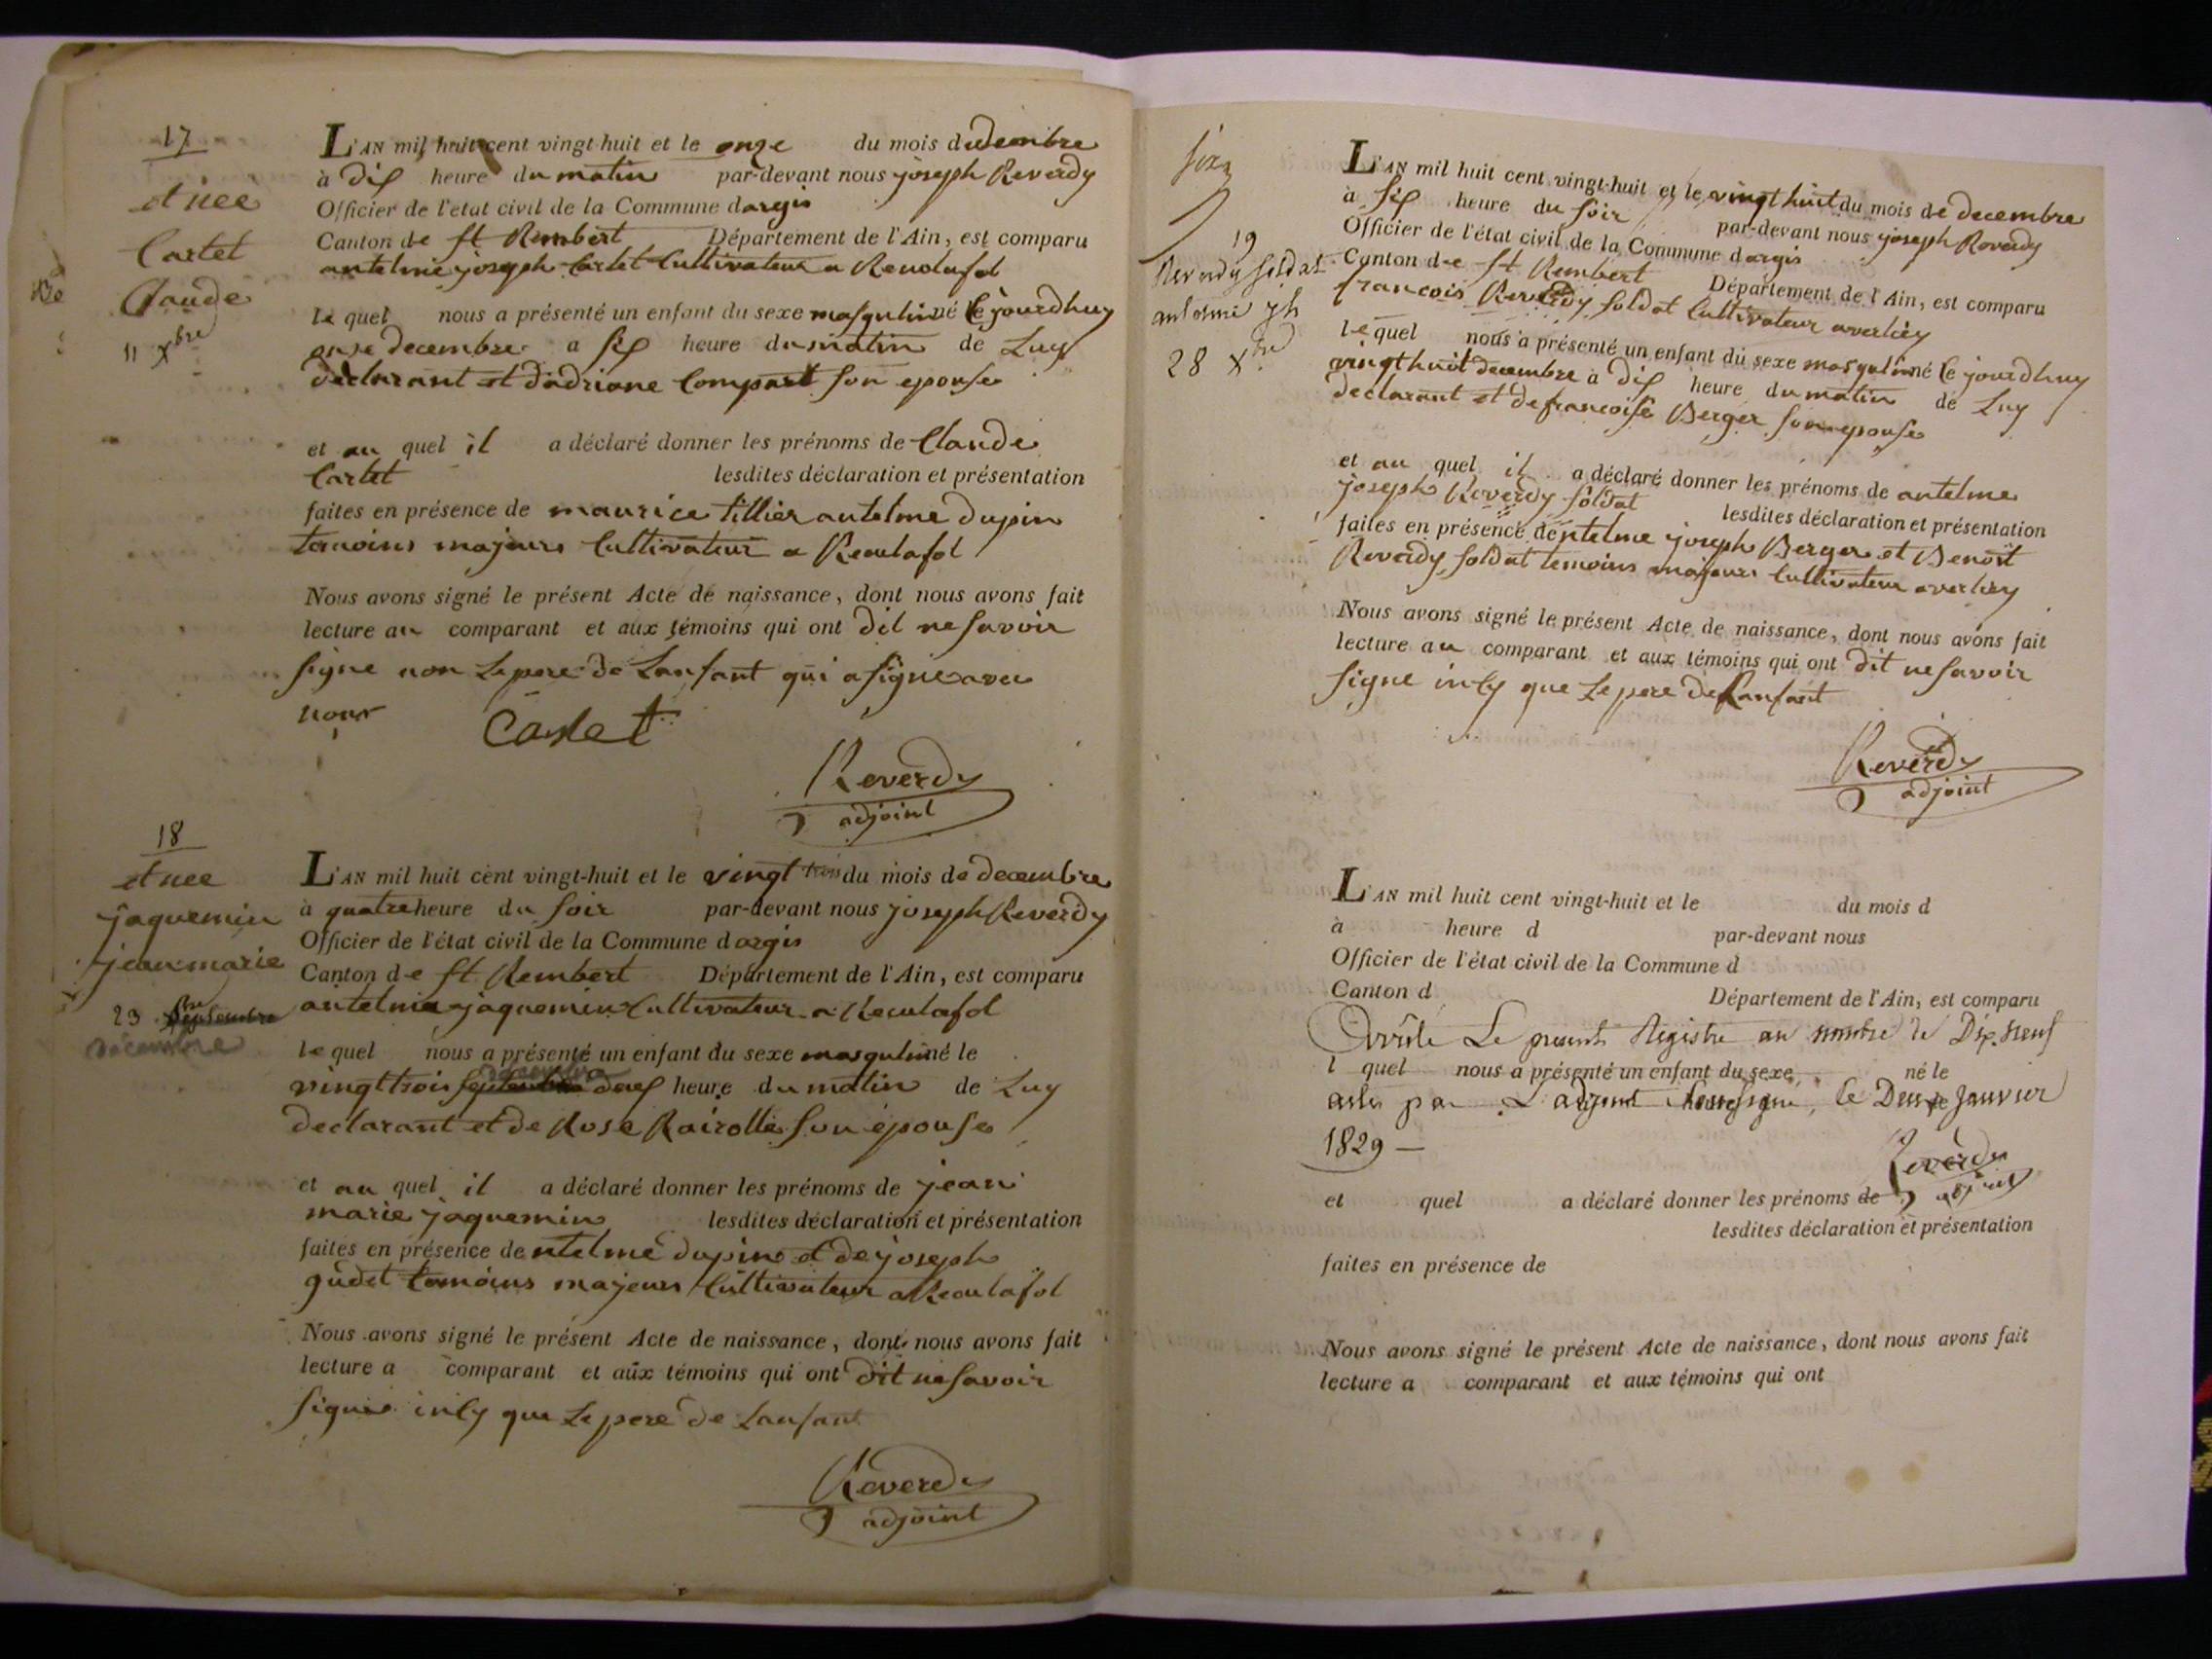 17
et nee
Cartet
Claude
11 Xbre
L'AN mil huit cent vingt-huit et le onze du mois de decembre
à dix heure du matin par-devant nous joseph Reverdy
Officier de l'état civil de la Commune dargis
Canton de St Rembert Département de l'Ain, est comparu
antelme joseph Cartet Cultivateur a Reculafol
le quel nous a présenté un enfant du sexe masqulin né Cejourdhuy
onze decembre a six heure du matin de Luy
declarant et dadriane Compart son epouse
et au quel il a déclaré donner les prénoms de Claude
Cartet lesdites déclaration et présentation
faites en présence de maurice tillier antelme dupin
temoins majeurs Cultivateur a Reculafol
Nous avons signé le présent Acte de naissance, dont nous avons fait
lecture au comparant et aux témoins qui ont dit ne savoir
signe non Le pere de Lanfant qui a signe avec
nous Cartet
Reverdy
adjoint
18
et nee
jaquemin
jean marie
23 septembre
decembre
L'AN mil huit cent vingt-huit et le vingt trois du mois de decembre
à quatre heure du soir par-devant nous joseph Reverdy
Officier de l'état civil de la Commune dargis
Canton de St Rembert Département de l'Ain, est comparu
antelme jaquemin Cultivateur a Reculafol
le quel nous a présenté un enfant du sexe masqulin né le
decembre
vingt trois septembre deux heure du matin de Luy
declarant et de Rose Rairolle son epouse
et au quel il a déclaré donner les prénoms de jean
marie jaquemin lesdites déclaration et présentation
faites en présence de ntelme dupin et de joseph
gudet temoins majeurs Cultivateur a Reculafol
Nous avons signé le présent Acte de naissance, dont nous avons fait
lecture a comparant et aux témoins qui ont dit ne savoir
signe inly que Le pere de Lanfant
Reverdy
adjoint
19
Reverdy soldat
antelme jh
28 Xbre
L'AN mil huit cent vingt-huit et le vingt huit du mois de decembre
à six heure du soir par-devant nous joseph Reverdy
Officier de l'état civil de la Commune dargis
Canton de St Rembert Département de l'Ain, est comparu
francois Reverdy soldat Cultivateur averliey
le quel nous a présenté un enfant du sexe masqulin né Cejourdhuy
vingt huit decembre à dix heure du matin de Luy
declarant et de francoise Berger son epouse
et au quel il a déclaré donner les prénoms de antelme
joseph Reverdy soldat lesdites déclaration et présentation
faites en présence de ntelme joseph Berger et Benoit
Reverdy soldat temoins majeurs Cultivateur averliey
Nous avons signé le présent Acte de naissance, dont nous avons fait
lecture au comparant et aux témoins qui ont dit ne savoir
signe inly que Le pere de Lanfant
Reverdy
adjoint
L'AN mil huit cent vingt-huit et le du mois d
à heure d par-devant nous
Officier de l'état civil de la Commune d
Canton d Département de l'Ain, est comparu
Le present Registre au nombre de Dix neuf
l quel nous a présenté un enfant du sexe né le
actes par L'adjoint soussigné, le Deux Janvier
1829 —
Reverdy
adjoint
et quel a déclaré donner les prénoms de
lesdites déclaration et présentation
faites en présence de
Nous avons signé le présent Acte de naissance, dont nous avons fait
lecture a comparant et aux témoins qui ont